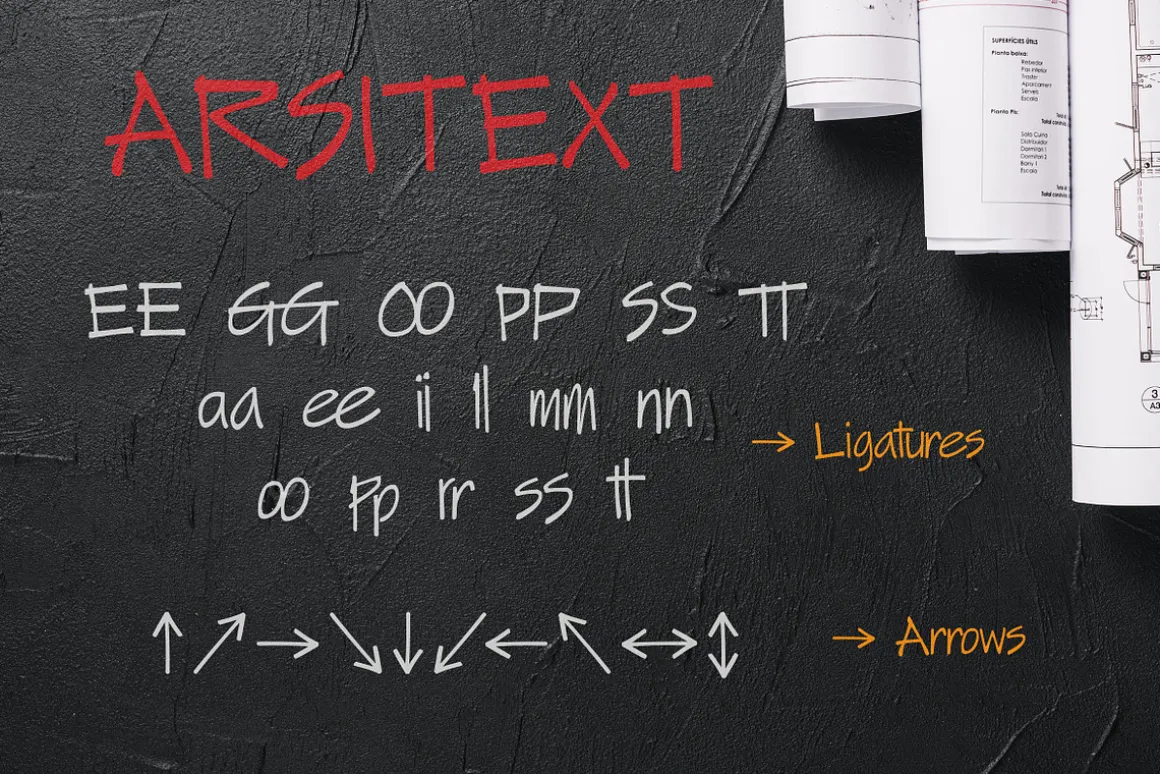 ARSITEXT
EE GG OO PP SS TT
aa ee ii ll mm nn
→ Ligatures
oo pp rr ss tt
↑ ↗ → ↘ ↓ ↙ ← ↖ ↔ ↕
→ Arrows
SUPERFÍCIES ÚTILS
Planta baixa:
Rebedor
Pas inferior
Traster
Aparcament
Serveis
Escala
Planta Pis:
Sala Cuina
Distribuidor
Dormitori 1
Dormitori 2
Bany 1
Escala
3
A3